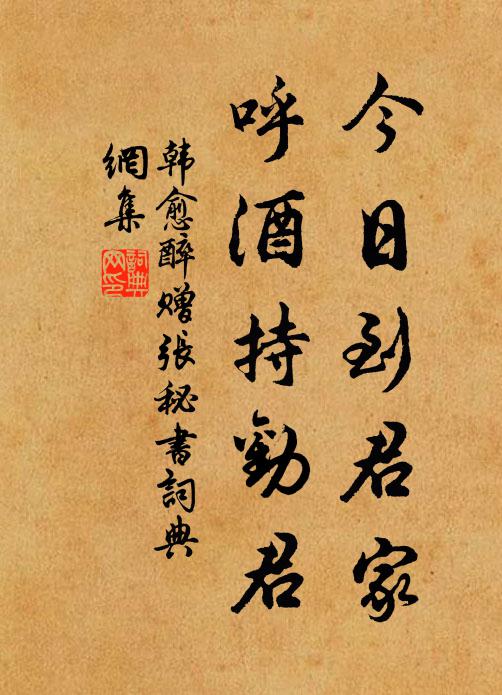 今日到君家
呼酒持勸君
韩愈醉赠張秘書詞典
網集
詞典网印